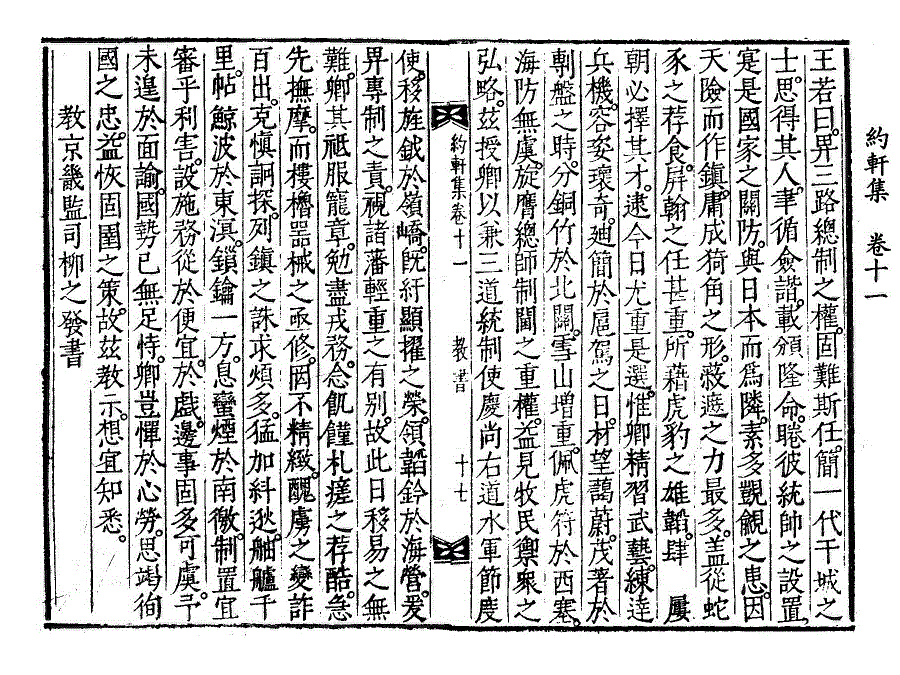 約軒集　卷十一
王若曰。畀三路總制之權。固難斯任。簡一代干城之
士。思得其人。聿循僉諧。載頒隆命。睠彼統帥之設置。
寔是國家之關防。與日本而爲隣。素多覬覦之患。因
天險而作鎭。庸成猗角之形。蔽遮之力最多。盖從蛇
豕之荐食。屛翰之任甚重。所藉虎豹之雄韜。肆　屢
朝必擇其才。逮今日尤重是選。惟卿精習武藝。練達
兵機。容姿瓌奇。廸簡於扈駕之日。材望藹蔚。茂著於
剸盤之時。分銅竹於北關。雪山增重。佩虎符於西塞。
海防無虞。旋膺總師制閫之重權。益見牧民禦衆之
弘略。玆授卿以兼三道統制使慶尙右道水軍節度
約軒集卷十一　　敎書　　十七
使。移旌鉞於嶺嶠。旣紆顯擢之榮。領韜鈐於海營。爰
畀專制之責。視諸藩輕重之有別。故此日移易之無
難。卿其祗服寵章。勉盡戎務。念飢饉札瘥之荐酷。急
先撫摩。而樓櫓器械之亟修。罔不精緻。醜虜之變詐
百出。克愼詗探。列鎭之誅求煩多。猛加糾逖。舳艫千
里。帖鯨波於東溟。鎖鑰一方。息蠻煙於南徼。制置宜
審乎利害。設施務從於便宜。於戲。邊事固多可虞。予
未遑於面諭。國勢已無足恃。卿豈憚於心勞。思竭徇
國之忠。益恢固圉之策。故玆敎示。想宜知悉。
敎京畿監司柳之發書